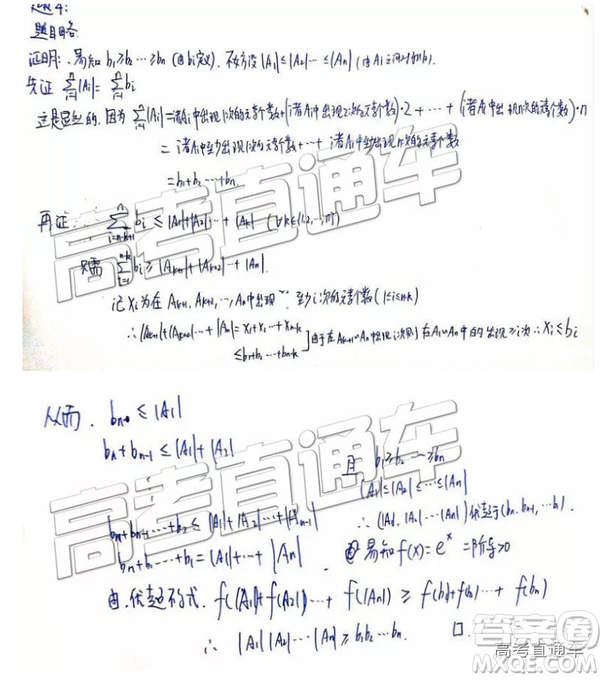 题目略
证明: 易知 b₁≥b₂…≥bₙ (由bᵢ定义). 不妨设 |A₁|≤|A₂|…≤|Aₙ| (由Aᵢ之间对称).
先证 ∑ᵢ₌₁ⁿ|Aᵢ| = ∑ᵢ₌₁ⁿ bᵢ
这是显然的. 因为 ∑ᵢ₌₁ⁿ|Aᵢ| = 诸Aᵢ中出现1次的元素个数+(诸Aᵢ中出现2次的元素个数)·2+…+(诸Aᵢ中出现n次的元素个数)·n
= 诸Aᵢ中至少出现1次的元素个数+…+诸Aᵢ中至少出现n次的元素个数
= b₁+b₂…+bₙ.
再证: ∑ᵢ₌ₙ₋ₖ₊₁ⁿ bᵢ ≤ |A₁|+|A₂|…+|Aₖ| (∀k∈{1,2,…,n})
只需 ∑ᵢ₌₁ⁿ⁻ᵏ bᵢ ≥ |Aₖ₊₁|+|Aₖ₊₂|…+|Aₙ|.
记 xᵢ 为在 Aₖ₊₁, Aₖ₊₂, …, Aₙ 中出现 至少i次的元素个数 (1≤i≤n-k)
∴ |Aₖ₊₁|+|Aₖ₊₂|…+|Aₙ| = x₁+x₂…+xₙ₋ₖ
≤ b₁+b₂…+bₙ₋ₖ
[由于在 Aₖ₊₁~Aₙ 中出现i次 则 在A₁~Aₙ中的出现≥i次 ∴ xᵢ≤bᵢ
从而. bₙ ≤ |A₁|
bₙ+bₙ₋₁ ≤ |A₁|+|A₂|
且 b₁≥b₂…≥bₙ
|A₁|≤|A₂|≤…≤|Aₙ|
bₙ+bₙ₋₁…+b₂ ≤ |A₁|+|A₂|…+|Aₙ₋₁|
∴ (|A₁|, |A₂|…|Aₙ|) 优超于 (bₙ, bₙ₋₁, …b₁).
bₙ+bₙ₋₁…+b₁ = |A₁|+…+|Aₙ|
易知 f(x)=eˣ 二阶导>0
由优超不等式. f(|A₁|)+f(|A₂|)…+f(|Aₙ|) ≥ f(b₁)+f(b₂)…+f(bₙ)
∴ |A₁||A₂|…|Aₙ| ≥ b₁b₂…bₙ. □.
高考直通车
高考直通车
答案圈
高考直通车
MXQE.COM